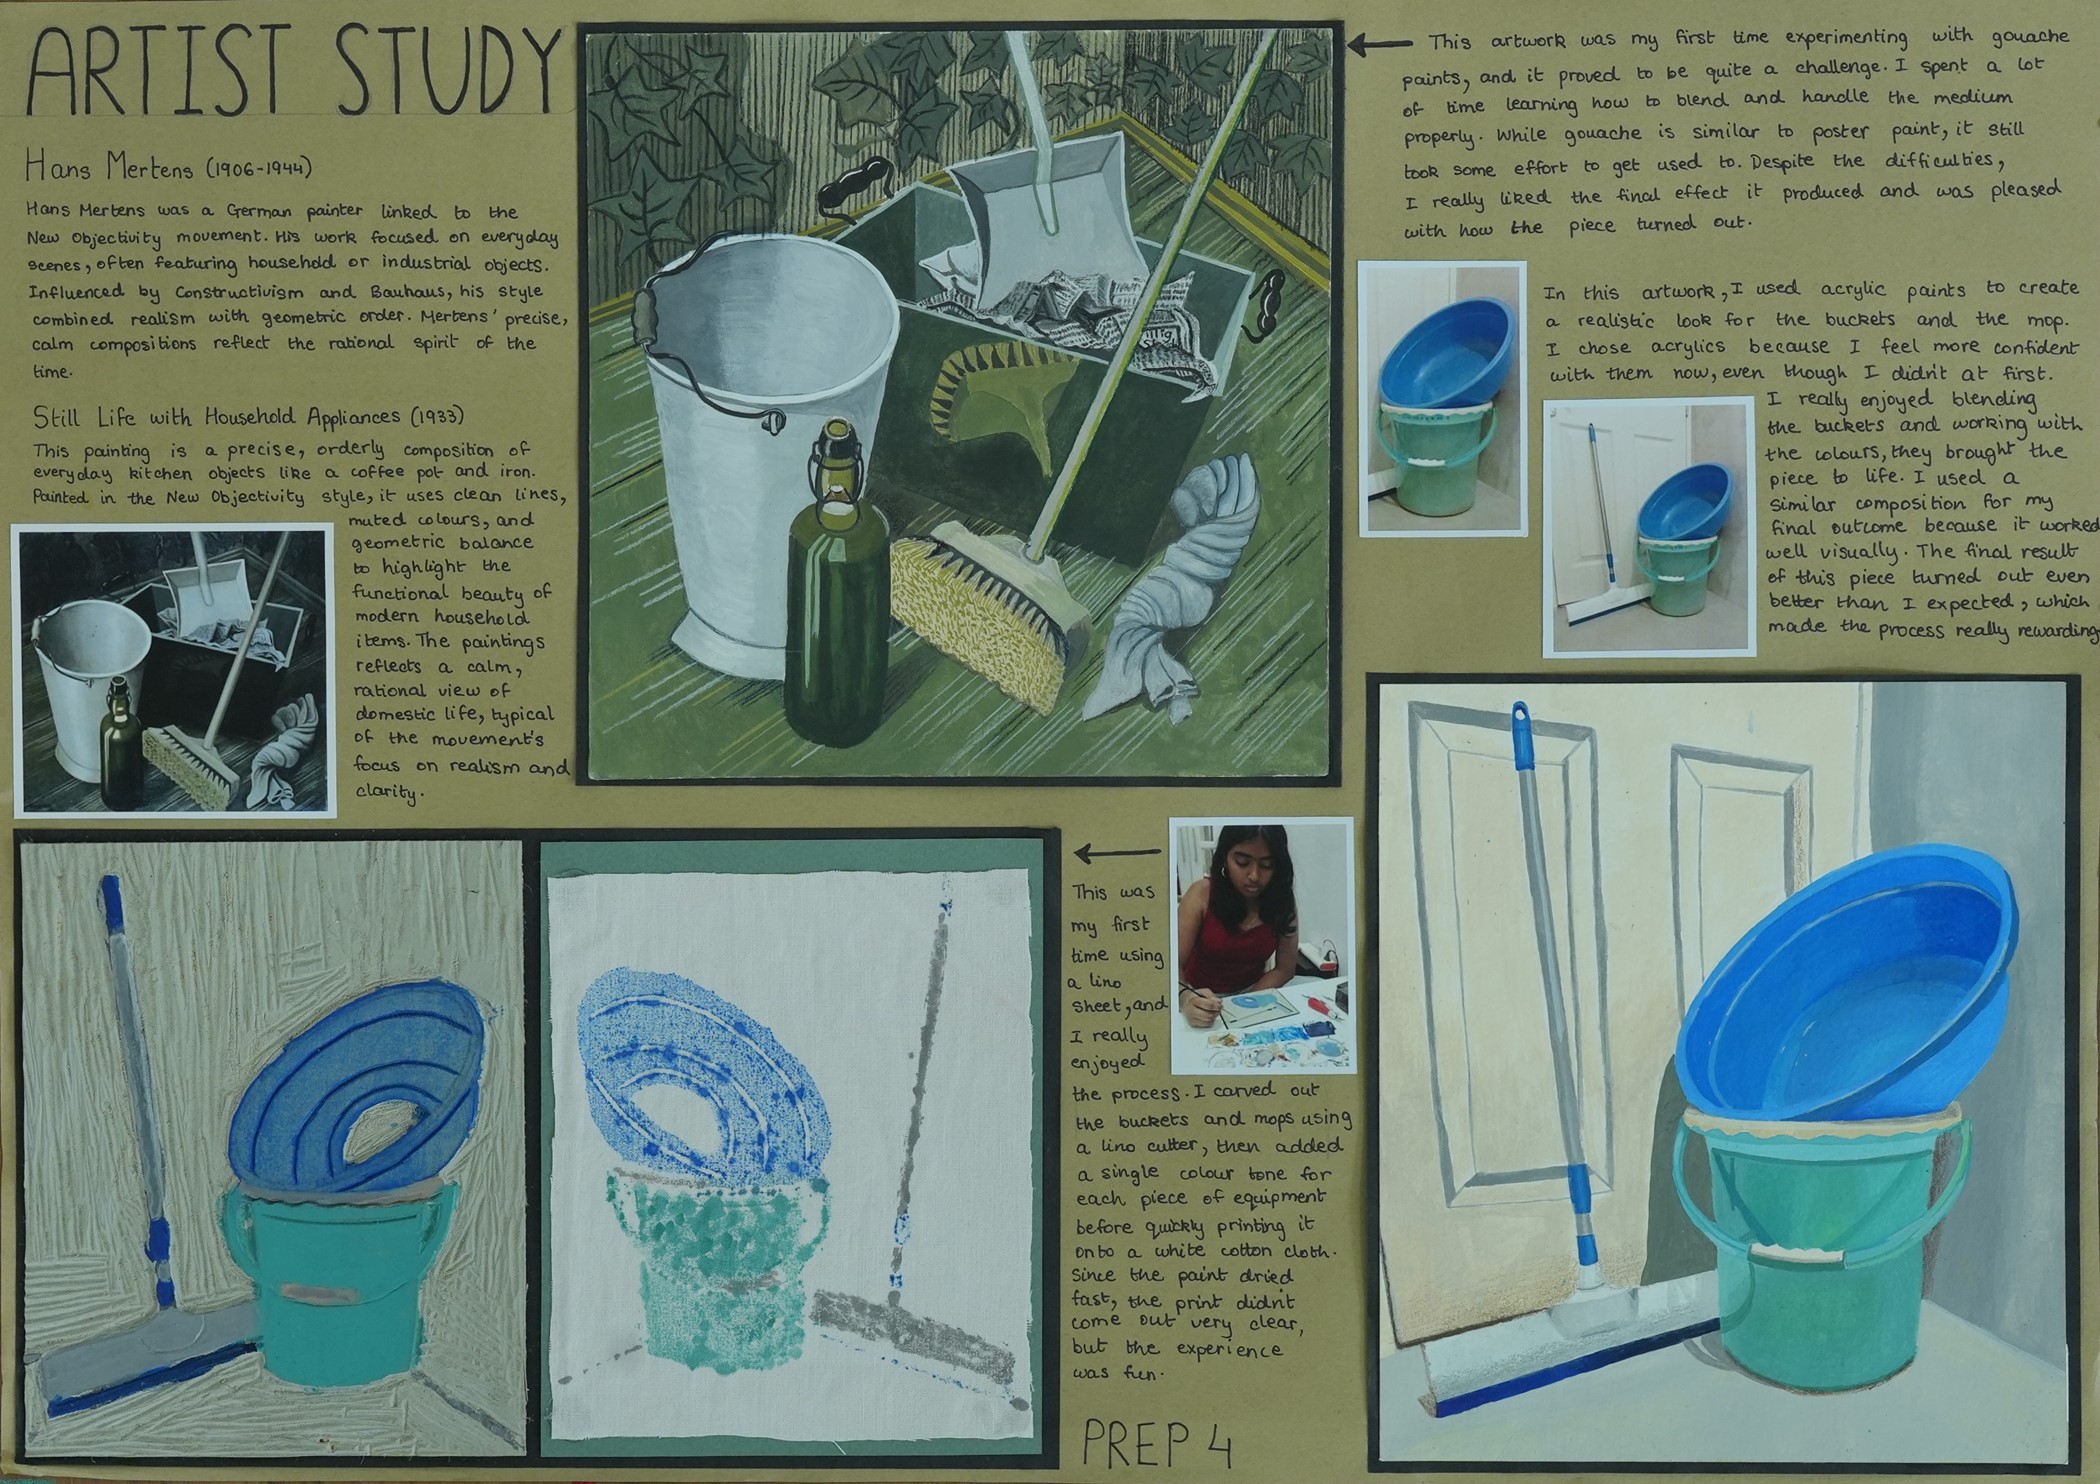 ARTIST STUDY
Hans Mertens (1906-1944)
Hans Mertens was a German painter linked to the
New Objectivity movement. His work focused on everyday
scenes, often featuring household or industrial objects.
Influenced by Constructivism and Bauhaus, his style
combined realism with geometric order. Mertens' precise,
calm compositions reflect the rational spirit of the
time.
Still Life with Household Appliances (1933)
This painting is a precise, orderly composition of
everyday kitchen objects like a coffee pot and iron.
Painted in the New Objectivity style, it uses clean lines,
muted colours, and
geometric balance
to highlight the
functional beauty of
modern household
items. The paintings
reflects a calm,
rational view of
domestic life, typical
of the movement's
focus on realism and
clarity.
This artwork was my first time experimenting with gouache
paints, and it proved to be quite a challenge. I spent a lot
of time learning how to blend and handle the medium
properly. While gouache is similar to poster paint, it still
took some effort to get used to. Despite the difficulties,
I really liked the final effect it produced and was pleased
with how the piece turned out.
In this artwork, I used acrylic paints to create
a realistic look for the buckets and the mop.
I chose acrylics because I feel more confident
with them now, even though I didn't at first.
I really enjoyed blending
the buckets and working with
the colours, they brought the
piece to life. I used a
similar composition for my
final outcome because it worked
well visually. The final result
of this piece turned out even
better than I expected, which
made the process really rewarding.
This was
my first
time using
a lino
sheet, and
I really
enjoyed
the process. I carved out
the buckets and mops using
a lino cutter, then added
a single colour tone for
each piece of equipment
before quickly printing it
onto a white cotton cloth.
Since the paint dried
fast, the print didn't
come out very clear,
but the experience
was fun.
PREP 4